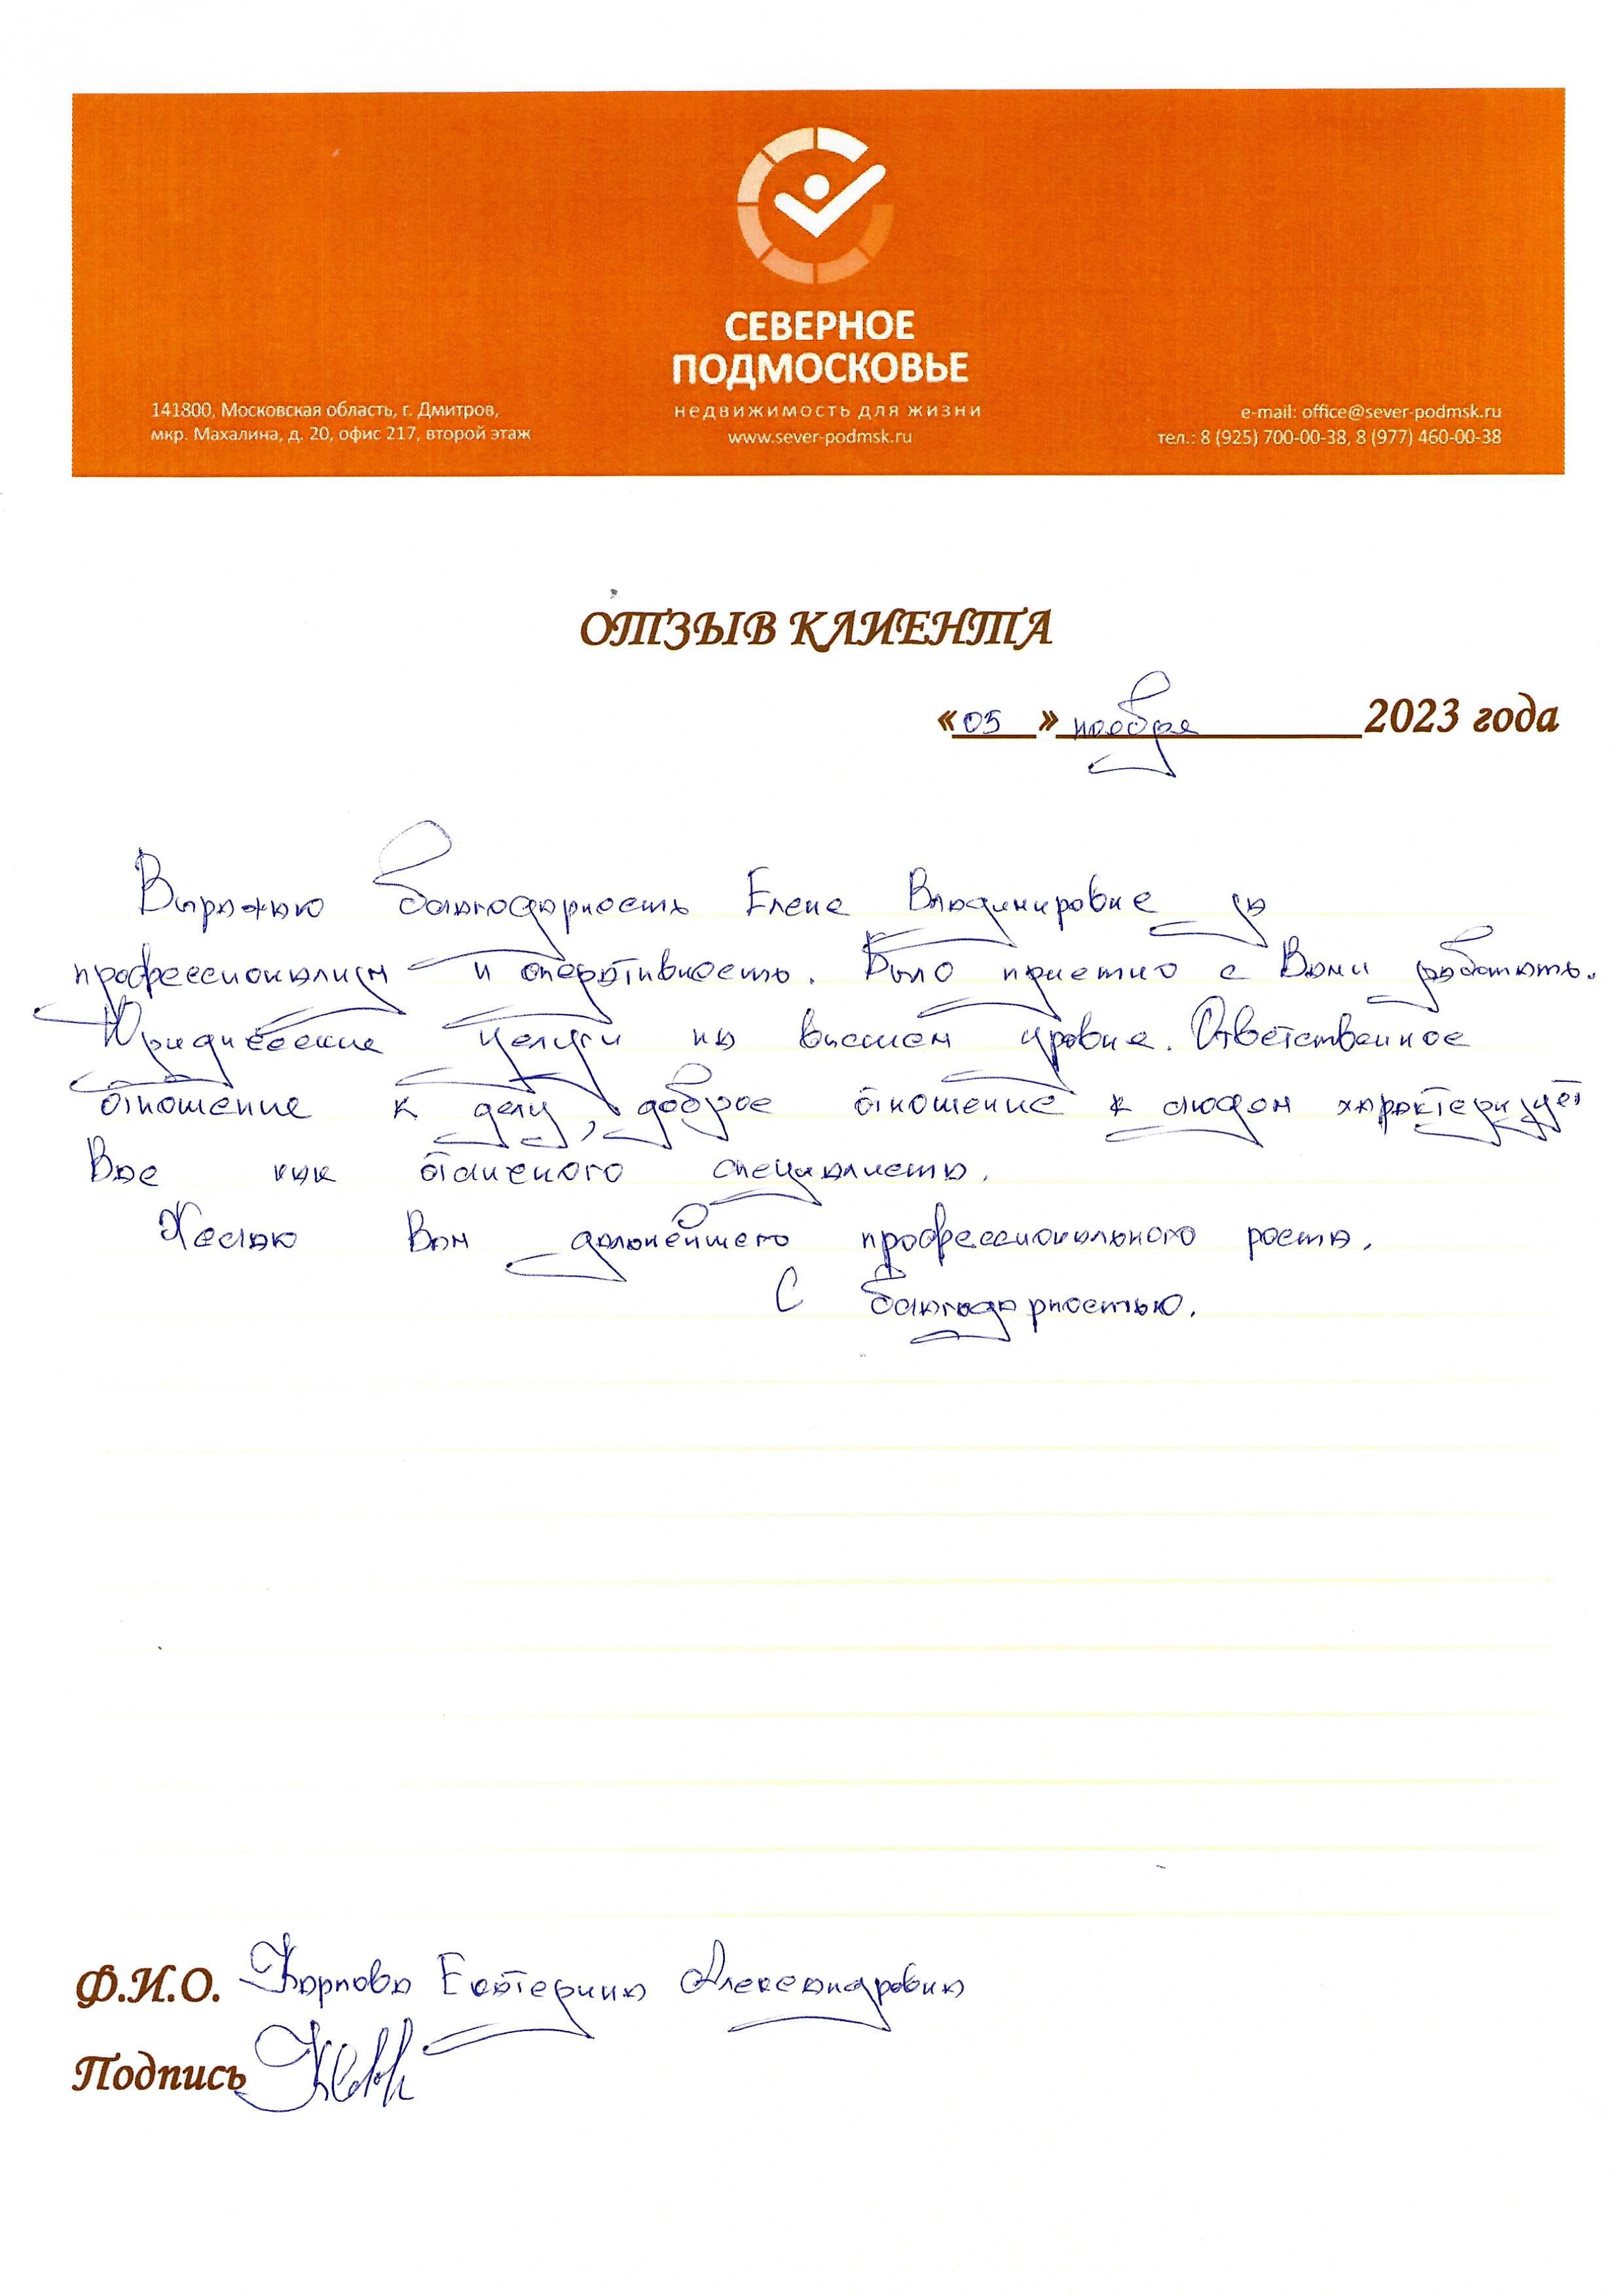 СЕВЕРНОЕ
ПОДМОСКОВЬЕ
недвижимость для жизни
www.sever-podmsk.ru
141800, Московская область, г. Дмитров,
мкр. Махалина, д. 20, офис 217, второй этаж
e-mail: office@sever-podmsk.ru
тел.: 8 (925) 700-00-38, 8 (977) 460-00-38
ОТЗЫВ КЛИЕНТА
«05» ноября 2023 года
Выражаю благодарность Елене Владимировне за
профессионализм и оперативность. Было приятно с Вами работать.
Юридические услуги на высшем уровне. Ответственное
отношение к делу, доброе отношение к людям характеризует
Вас как отличного специалиста.
Желаю Вам дальнейшего профессионального роста.
С благодарностью.
Ф.И.О. Карпова Екатерина Александровна
Подпись